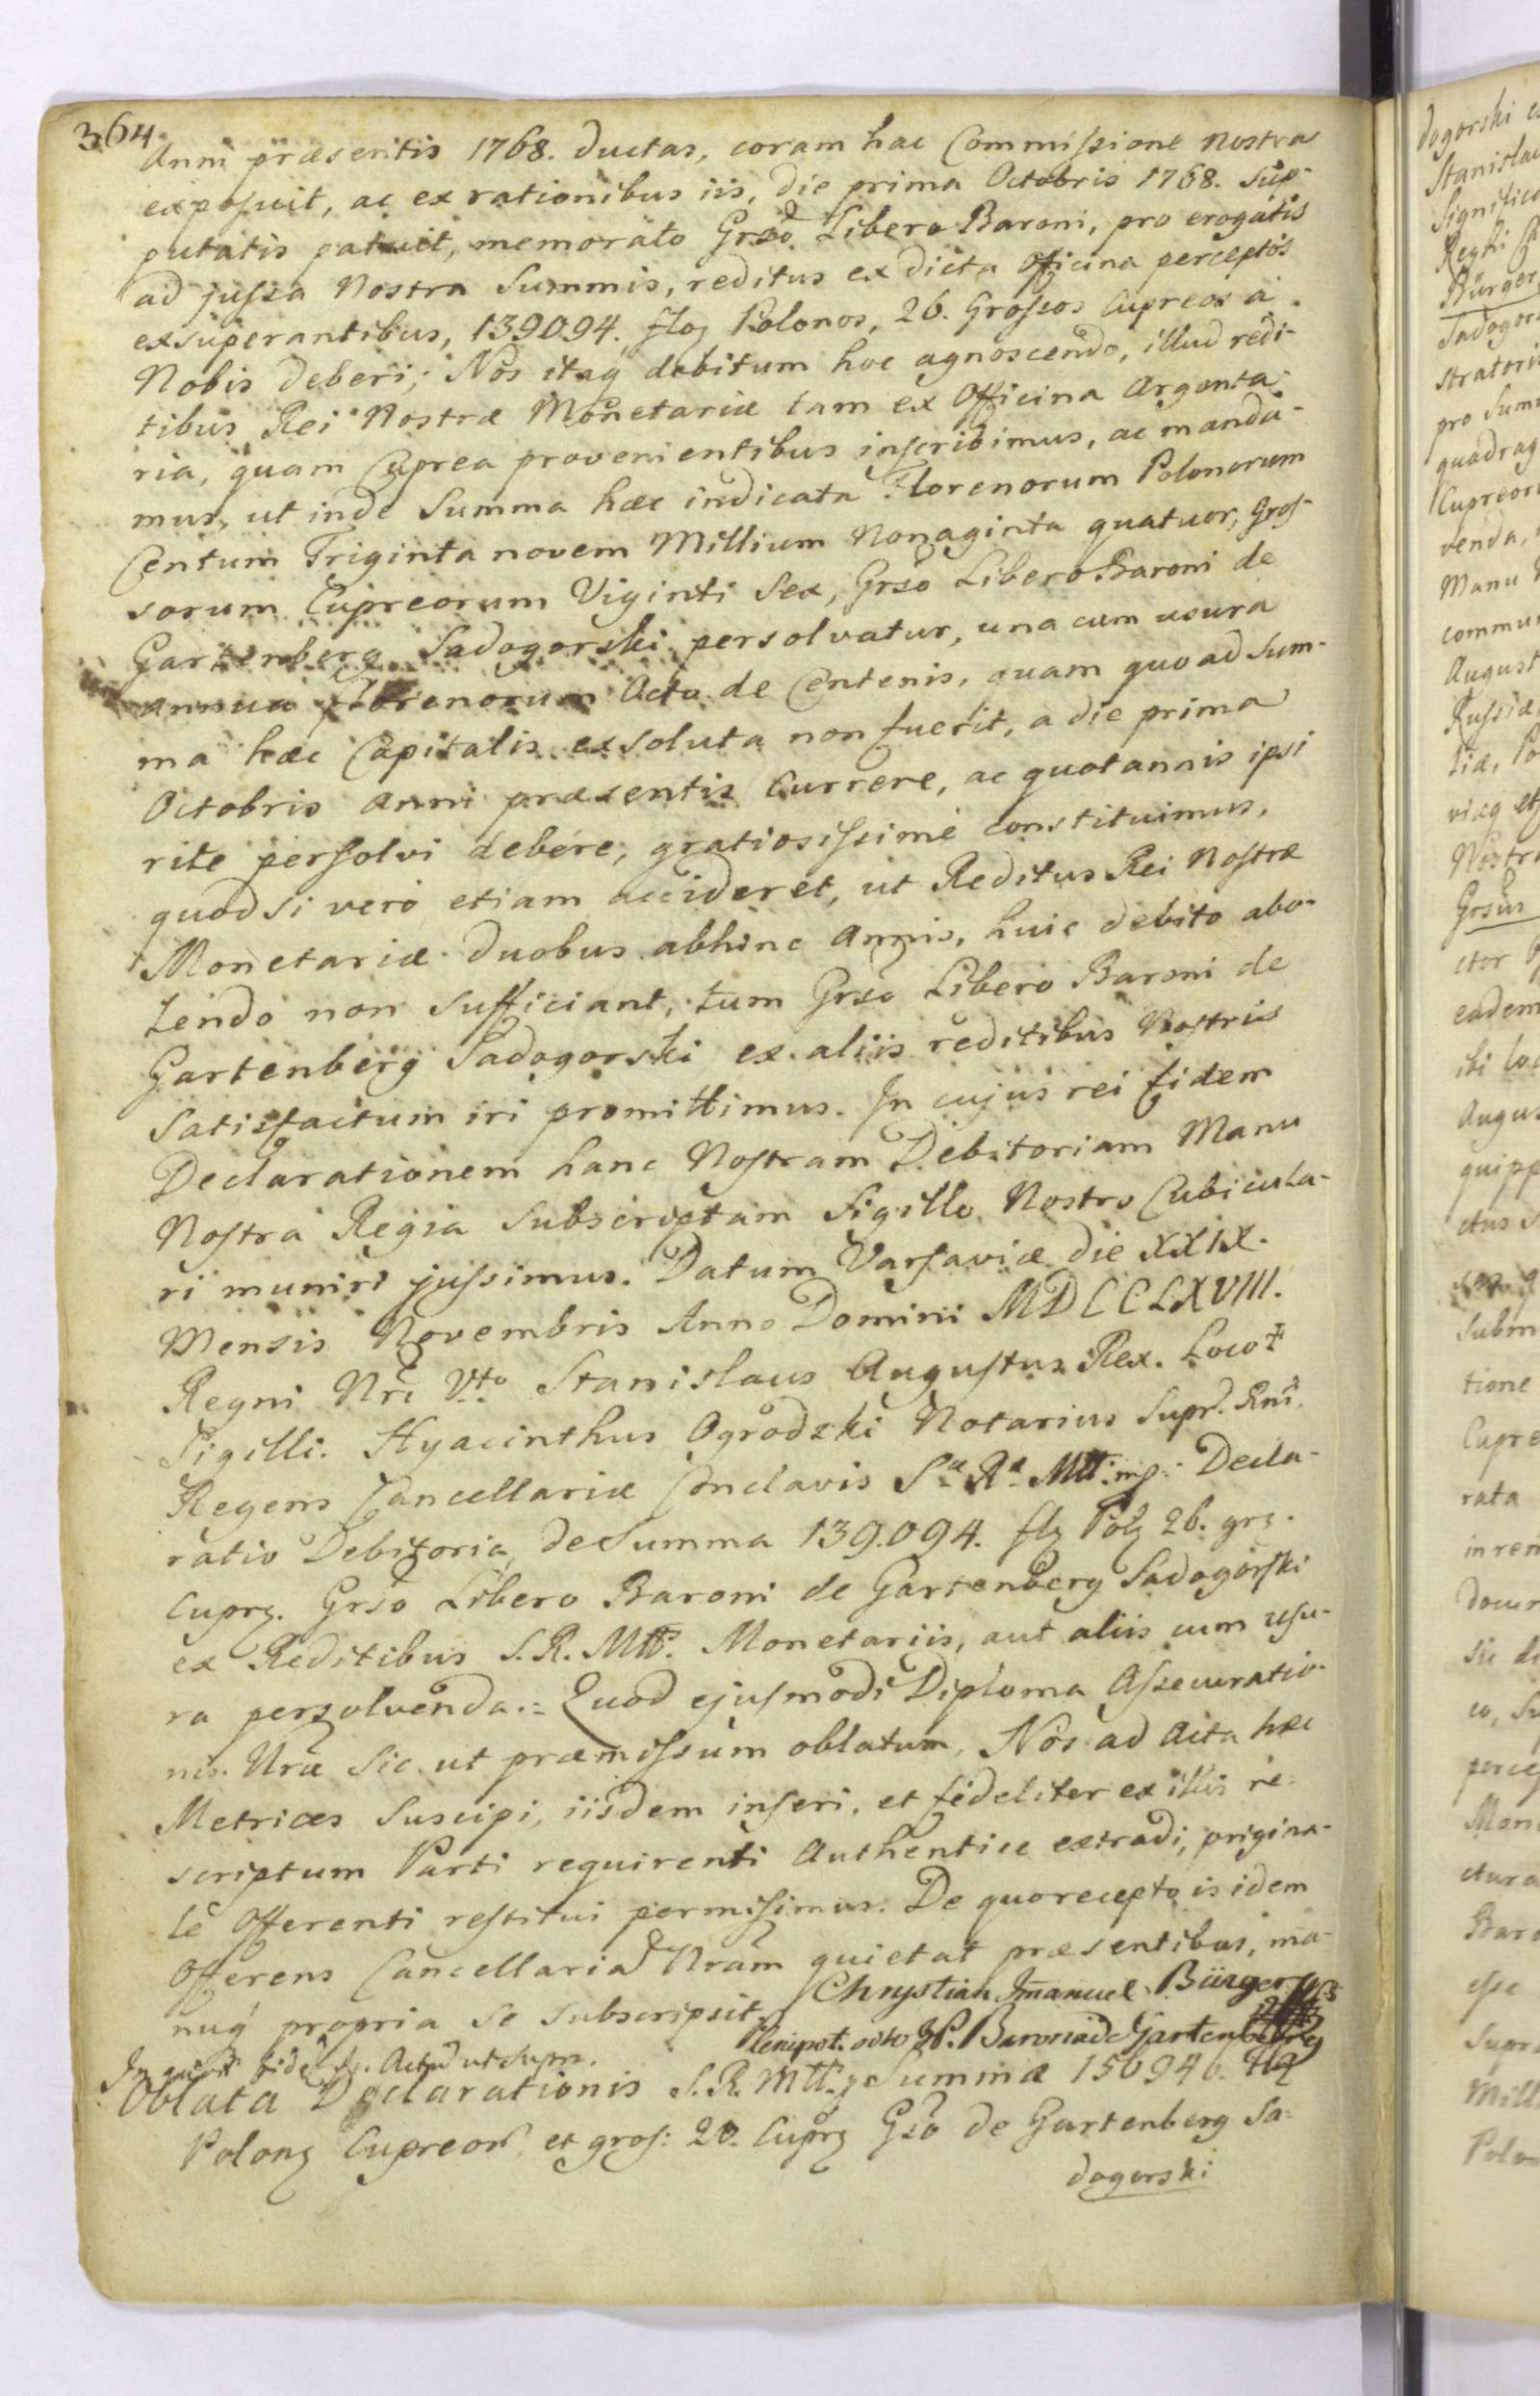 364
Anni præsentis 1768. ductas, coram hac Commissione Nostra
exposuit, ac ex rationibus iis, die prima Octobris 1768. Sup-
putatis patuit, memorato Grso Libero Baroni, pro erogatis
ad jussa Nostra Summis, reditus ex dicta Officina perceptos
exsuperantibus, 139094. floz Polonos, 26. Grossos Cupreos a
Nobis deberi; Nos itaq debitum hoc agnoscendo, illud redi-
tibus Rei Nostræ Monetariæ tam ex Officina Argenta-
ria, quam Cuprea provenientibus inscribimus, ac manda-
mus, ut inde Summa hæc indicata Florenorum Polonorum
Centum Triginta novem Millium Nonaginta quatuor, Gros-
sorum Cupreorum Viginti Sex, Grso Libero Baroni de
Gartenberg Sadogorski persolvatur, una cum usura
annua Florenorum Octo de Centenis, quam quoad Sum-
ma hæc Capitalis exsoluta non fuerit, a die prima
Octobris anni præsentis Currere, ac quotannis ipsi
rite persolvi debere, gratiosissime constituimus,
quodsi vero etiam accideret, ut Reditus Rei Nostræ
Monetariæ duobus abhinc Annis, huic debito abo-
lendo non Sufficiant, tum Grso Libero Baroni de
Gartenberg Sadogorski ex aliis reditibus Nostris
Satisfactum iri promittimus. In cujus rei fidem
Declarationem hanc Nostram Debitoriam Manu
Nostra Regia Subscriptam Sigillo Nostro Cubicula-
ri muniri jussimus. Datum Varsaviæ die XXIX.
Mensis Novembris Anno Domini MDCCLXVIII.
Regni Nri Vto Stanislaus Augustus Rex. Loco
Sigilli. Hyacinthus Ogrodzki Notarius Supr. Rni
Regens Cancellariæ Conclavis Sæ Ræ Mtt: mp: Decla-
ratio Debitoria de Summa 139.094. flz Polz 26. grs.
Cuprz. Grso Libero Baroni de Gartenberg Sadogorski
ex Reditibus S. R. Mtt. Monetariis, aut aliis cum usu-
ra persolvenda.= Quod ejusmodi Diploma Assecuratio-
nis Uræ Sic ut præmissum oblatum, Nos ad Acta hæc
Metrices Suscipi, iisdem inseri, et fideliter ex illis re-
scriptum Parti requirenti Authentice extradi, origina-
le Offerenti restitui permisimus. De quo recepto is idem
Offerens Cancellaria Nram quietat præsentibus, ma-
nuq propria se subscripsit.
Chrystian Imanuel Bürger
Plenipot. Barona de Gartenberg
fide Actu ut supra.
Oblata Declarationis S. R. Mtt. Summæ 156946. flz
Polonz Cupreor et gros: 20. Cuprz Gso de Gartenberg Sa-
dogorski